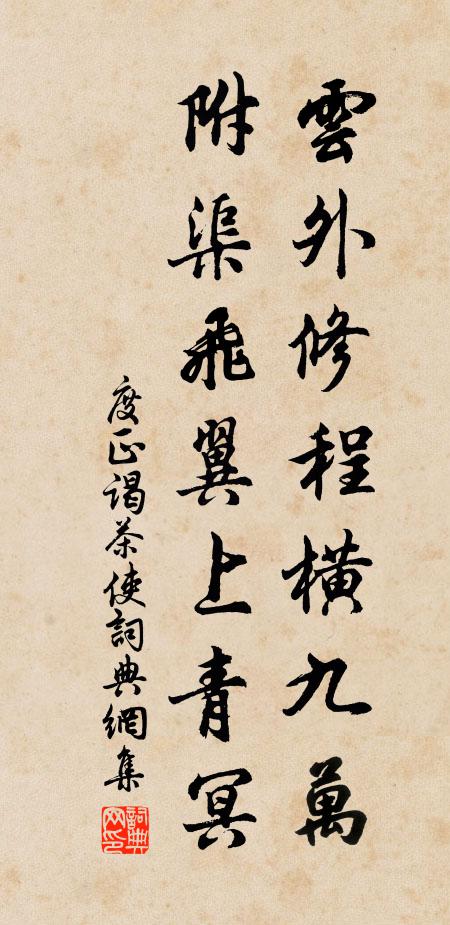 雲外修程橫九萬
附渠飛翼上青冥
度正謁茶使詞典網集
詞典網印